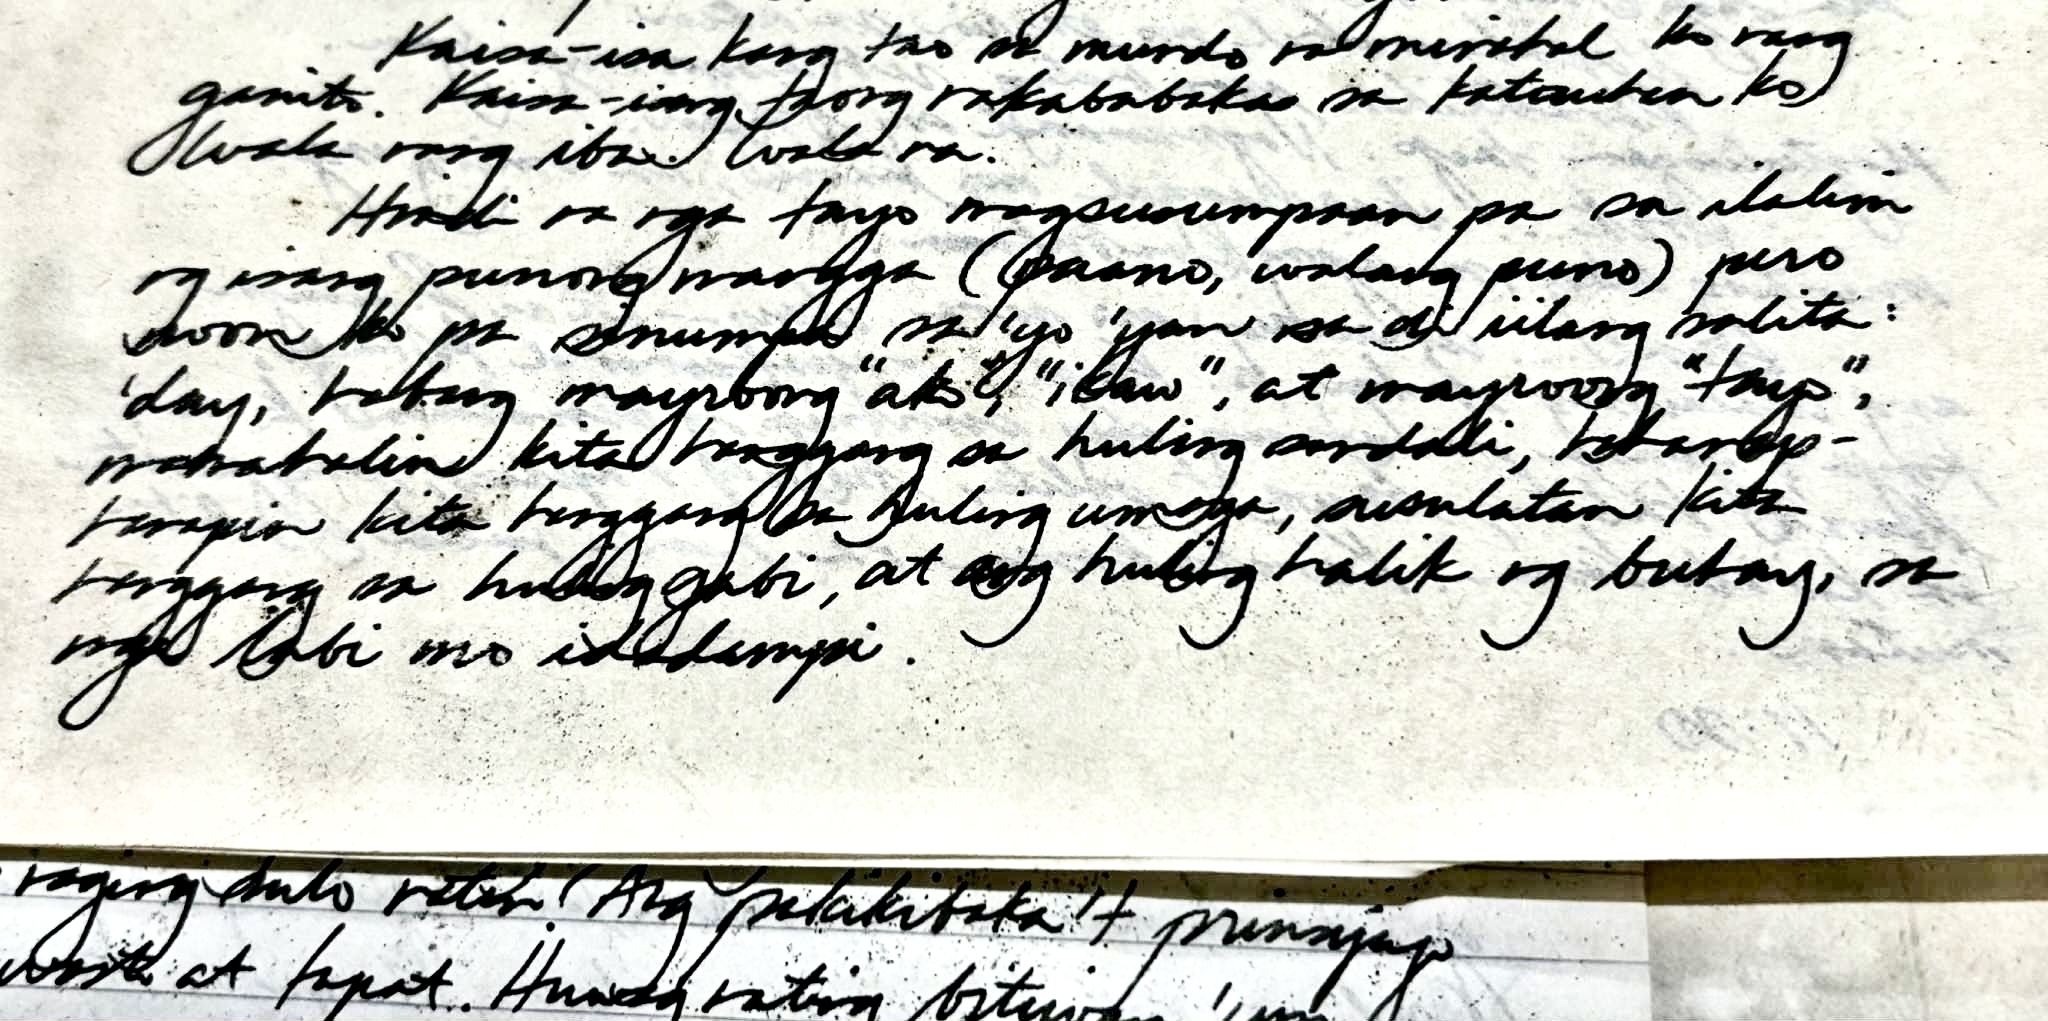 Kaisa-isa kang tao sa mundo na minahal ko nang
ganito. Kaisa-isang taong nakababakas sa katauhan ko
Wala nang iba. Wala na.
Hindi na nga tayo magsusumpaan pa sa ilalim
ng isang punong mangga (paano, walang puno) pero
noon ko pa sinumpa sa 'yo 'yan sa di iilang salita:
'day, habang mayroong "ako", "ikaw", at mayroong "tayo",
mamahalin kita hanggang sa huling sandali, hahanap-
hanapin kita hanggang sa huling umaga, susulatan kita
hanggang sa huling gabi, at ang huling halik ng buhay, sa
mga labi mo idadampi.
naging dulo natin! Ang pakikibaka't prinsipyo
at tapat. Huwag nating bitiwan 'yun